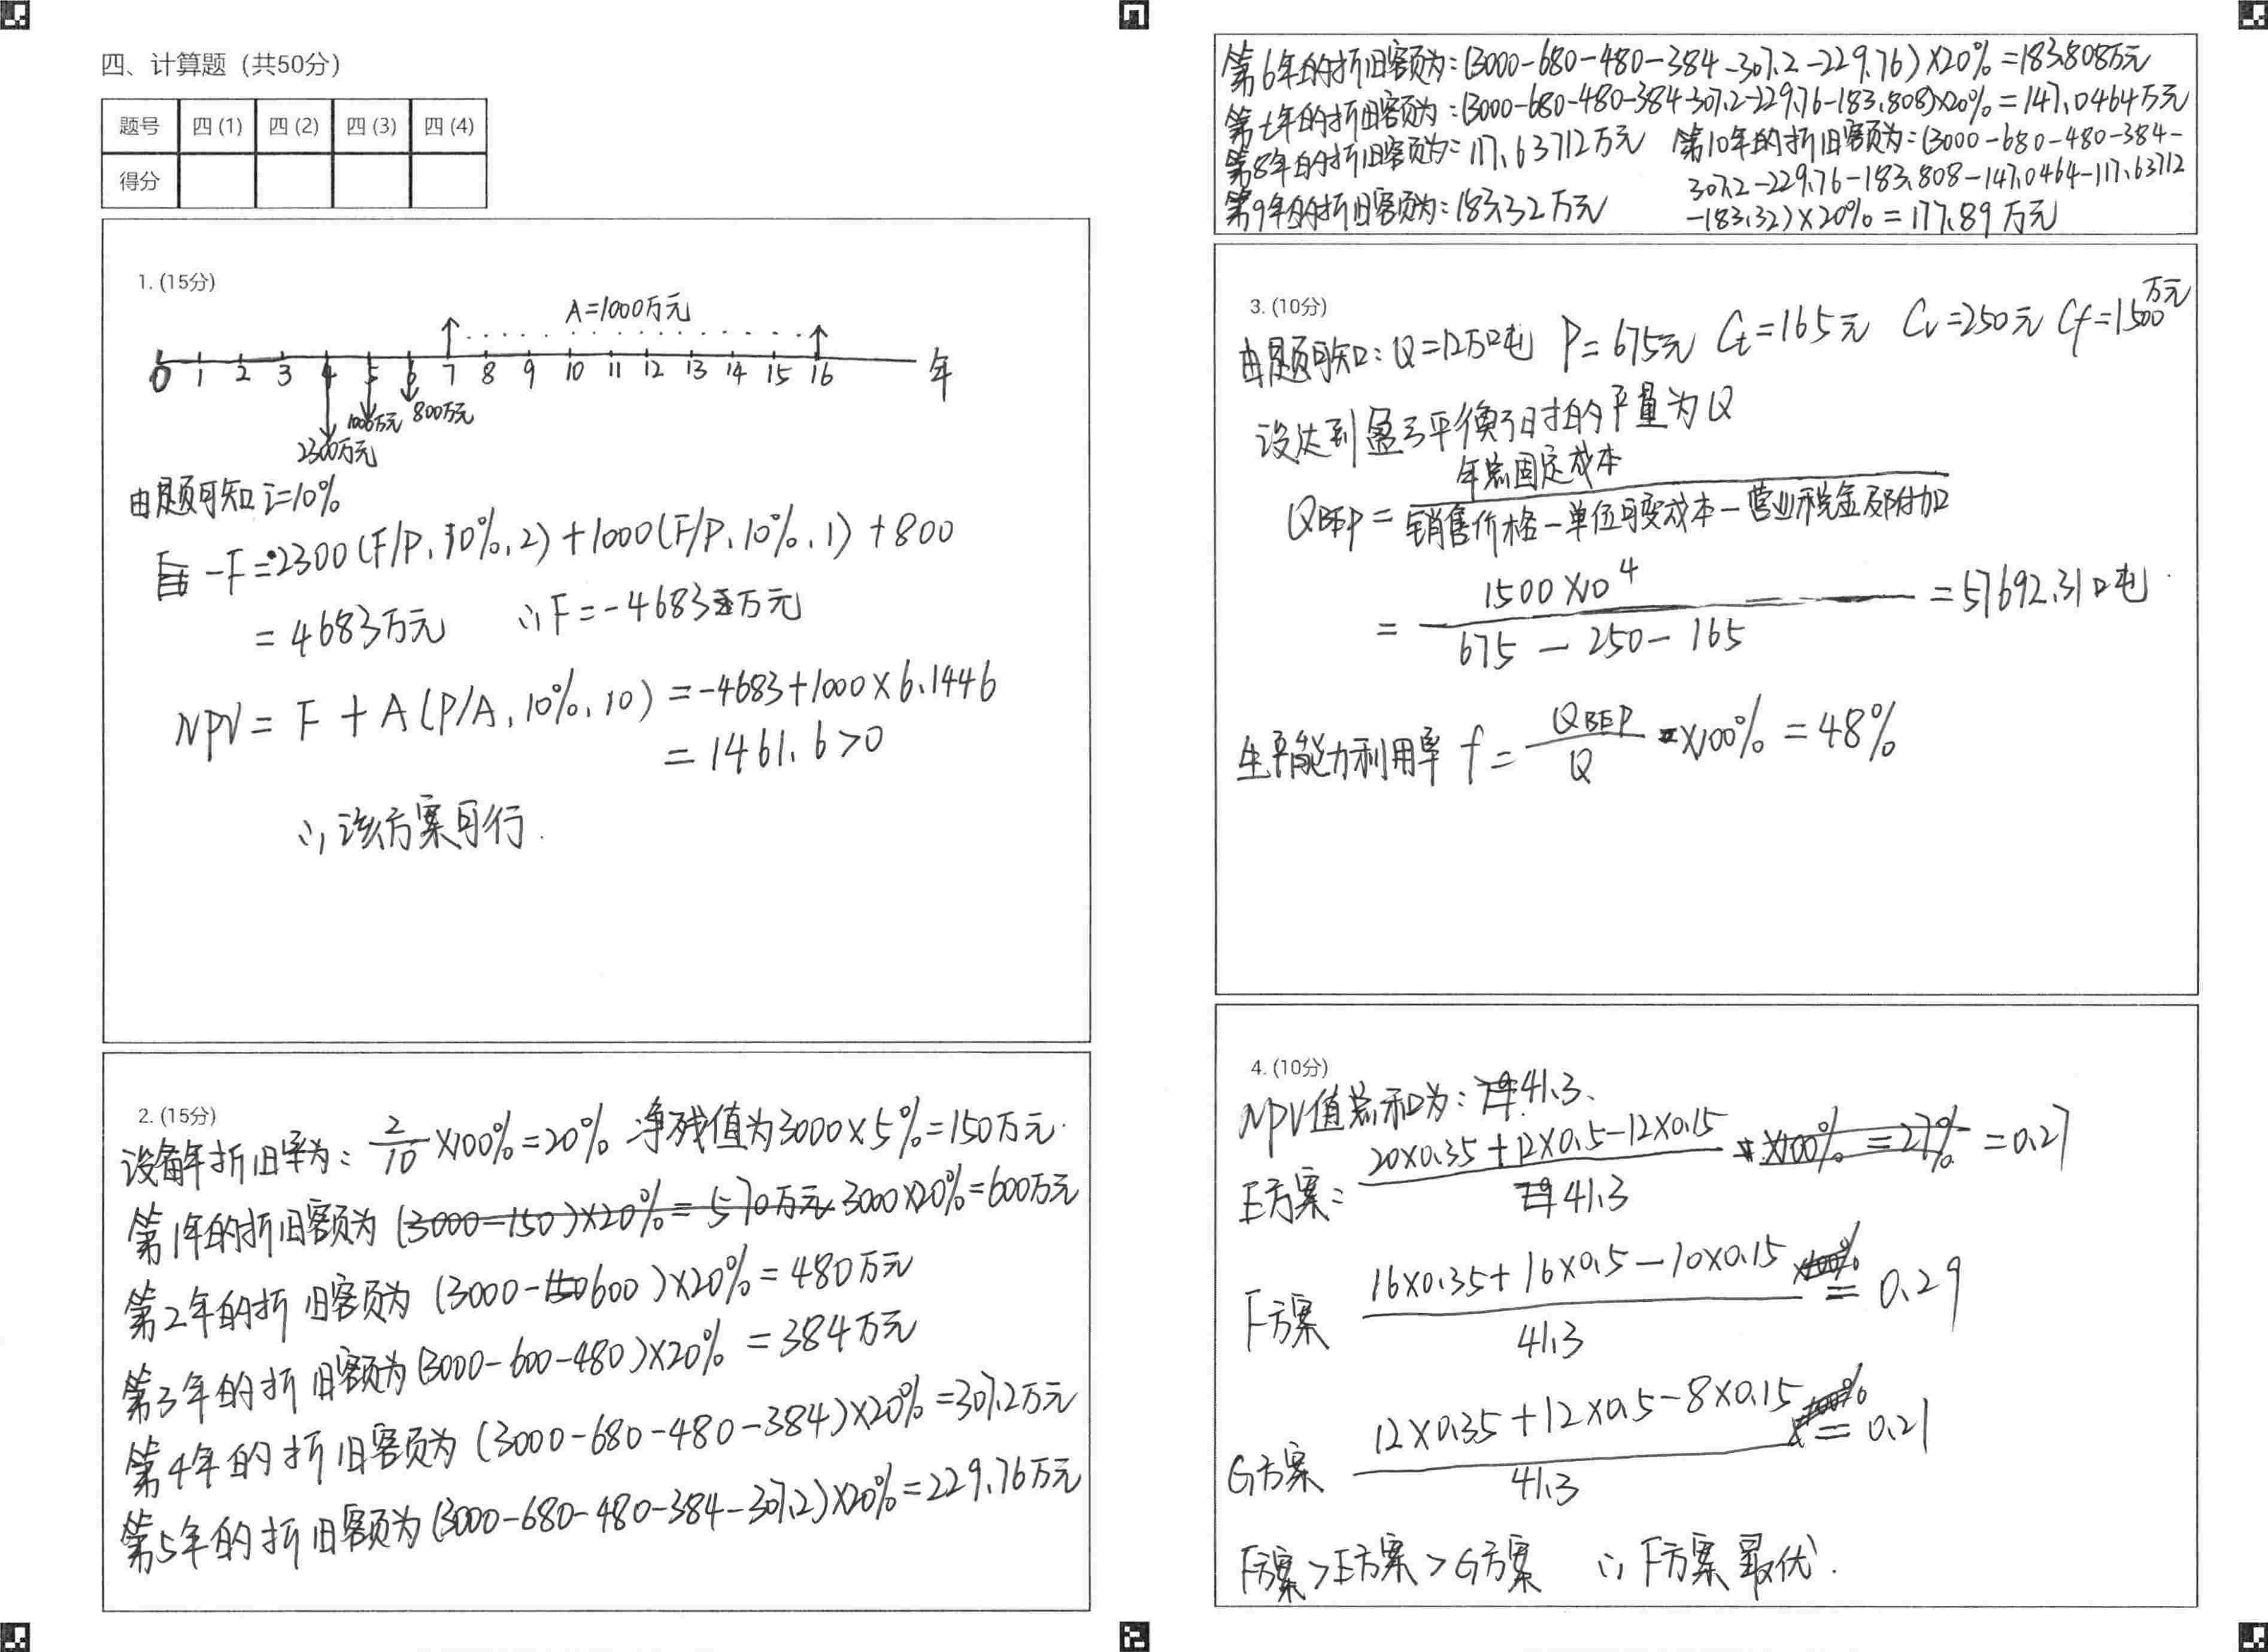 四、计算题（共50分）
题号 四(1) 四(2) 四(3) 四(4)
得分
1. (15分)
A=1000万元
0 1 2 3 4 5 6 7 8 9 10 11 12 13 14 15 16 年
1000万元 800万元
2300万元
由题可知 i=10%
-F=2300(F/P,10%,2)+1000(F/P,10%,1)+800
=4683万元 ∴F=-4683万元
NPV=F+A(P/A,10%,10)=-4683+1000×6.1446
=1461.6>0
∴该方案可行.
2. (15分)
设备年折旧率为: 2/10×100%=20% 净残值为3000×5%=150万元.
第1年的折旧额为 (3000-150)×20%=570万元 3000×20%=600万元
第2年的折旧额为 (3000-600)×20%=480万元
第3年的折旧额为(3000-600-480)×20%=384万元
第4年的折旧额为(3000-680-480-384)×20%=307.2万元
第5年的折旧额为(3000-680-480-384-307.2)×20%=229.76万元
第6年的折旧额为:(3000-680-480-384-307.2-229.76)×20%=183.808万元
第七年的折旧额为:(3000-680-480-384-307.2-229.76-183.808)×20%=147.0464万元
第8年的折旧额为=117.63712万元 第10年的折旧额为:(3000-680-480-384-
307.2-229.76-183.808-147.0464-117.63712
第9年的折旧额为:183.32万元 -183.32)×20%=177.89万元
3. (10分)
由题可知:Q=12万吨 P=675元 Ct=165元 Cv=250元 Cf=1500万元
设达到盈亏平衡时的产量为Q
QBEP= 年总固定成本
销售价格-单位可变成本-营业税金及附加
= 1500×10^4 =57692.31吨.
675-250-165
生产能力利用率 f= QBEP/Q ×100%=48%
4. (10分)
NPV值总和为: 41.3.
E方案: 20×0.35+12×0.5-12×0.15 ×100%=27% =0.27
41.3
F方案 16×0.35+16×0.5-10×0.15 =0.29
41.3
G方案 12×0.35+12×0.5-8×0.15 =0.21
41.3
F方案>E方案>G方案 ∴F方案最优.